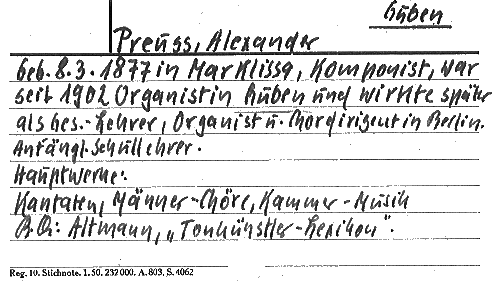 Guben
Preuss, Alexander
Geb. 8.3.1877 in Marklissa, Komponist, war
seit 1902 Organist in Guben und wirkte später
als Ges.-Lehrer, Organist u. Chordirigent in Berlin.
Anfängl. Schullehrer.
Hauptwerke:
Kantaten, Männer-Chöre, Kammer-Musik
B.Qu: Altmann, "Tonkünstler-Lexikon".
Reg. 10. Stichnote. 1. 50. 232000. A. 803, S. 4062